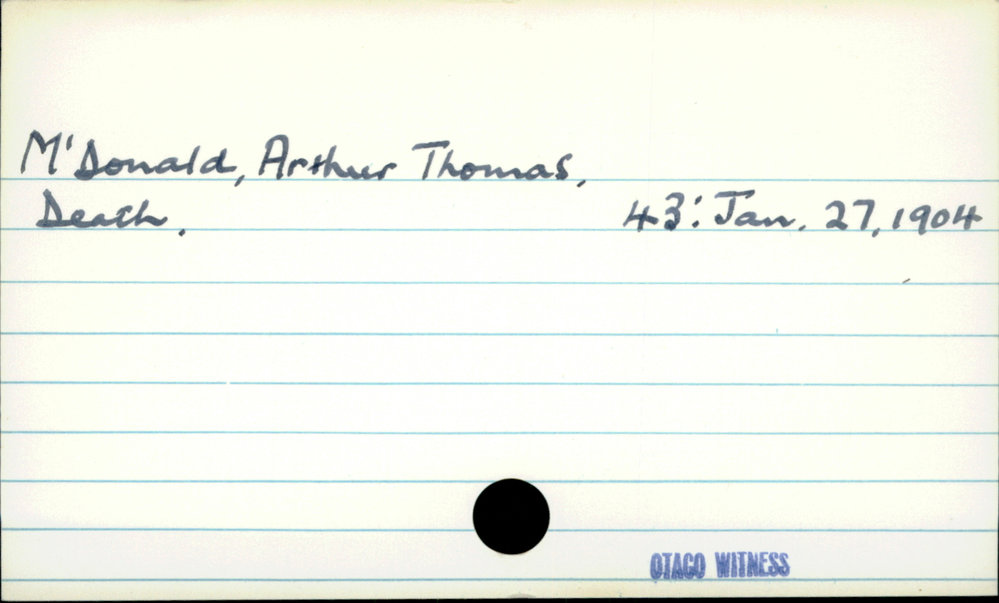 M'Donald, Arthur Thomas,
Death.
43: Jan. 27, 1904
OTAGO WITNESS